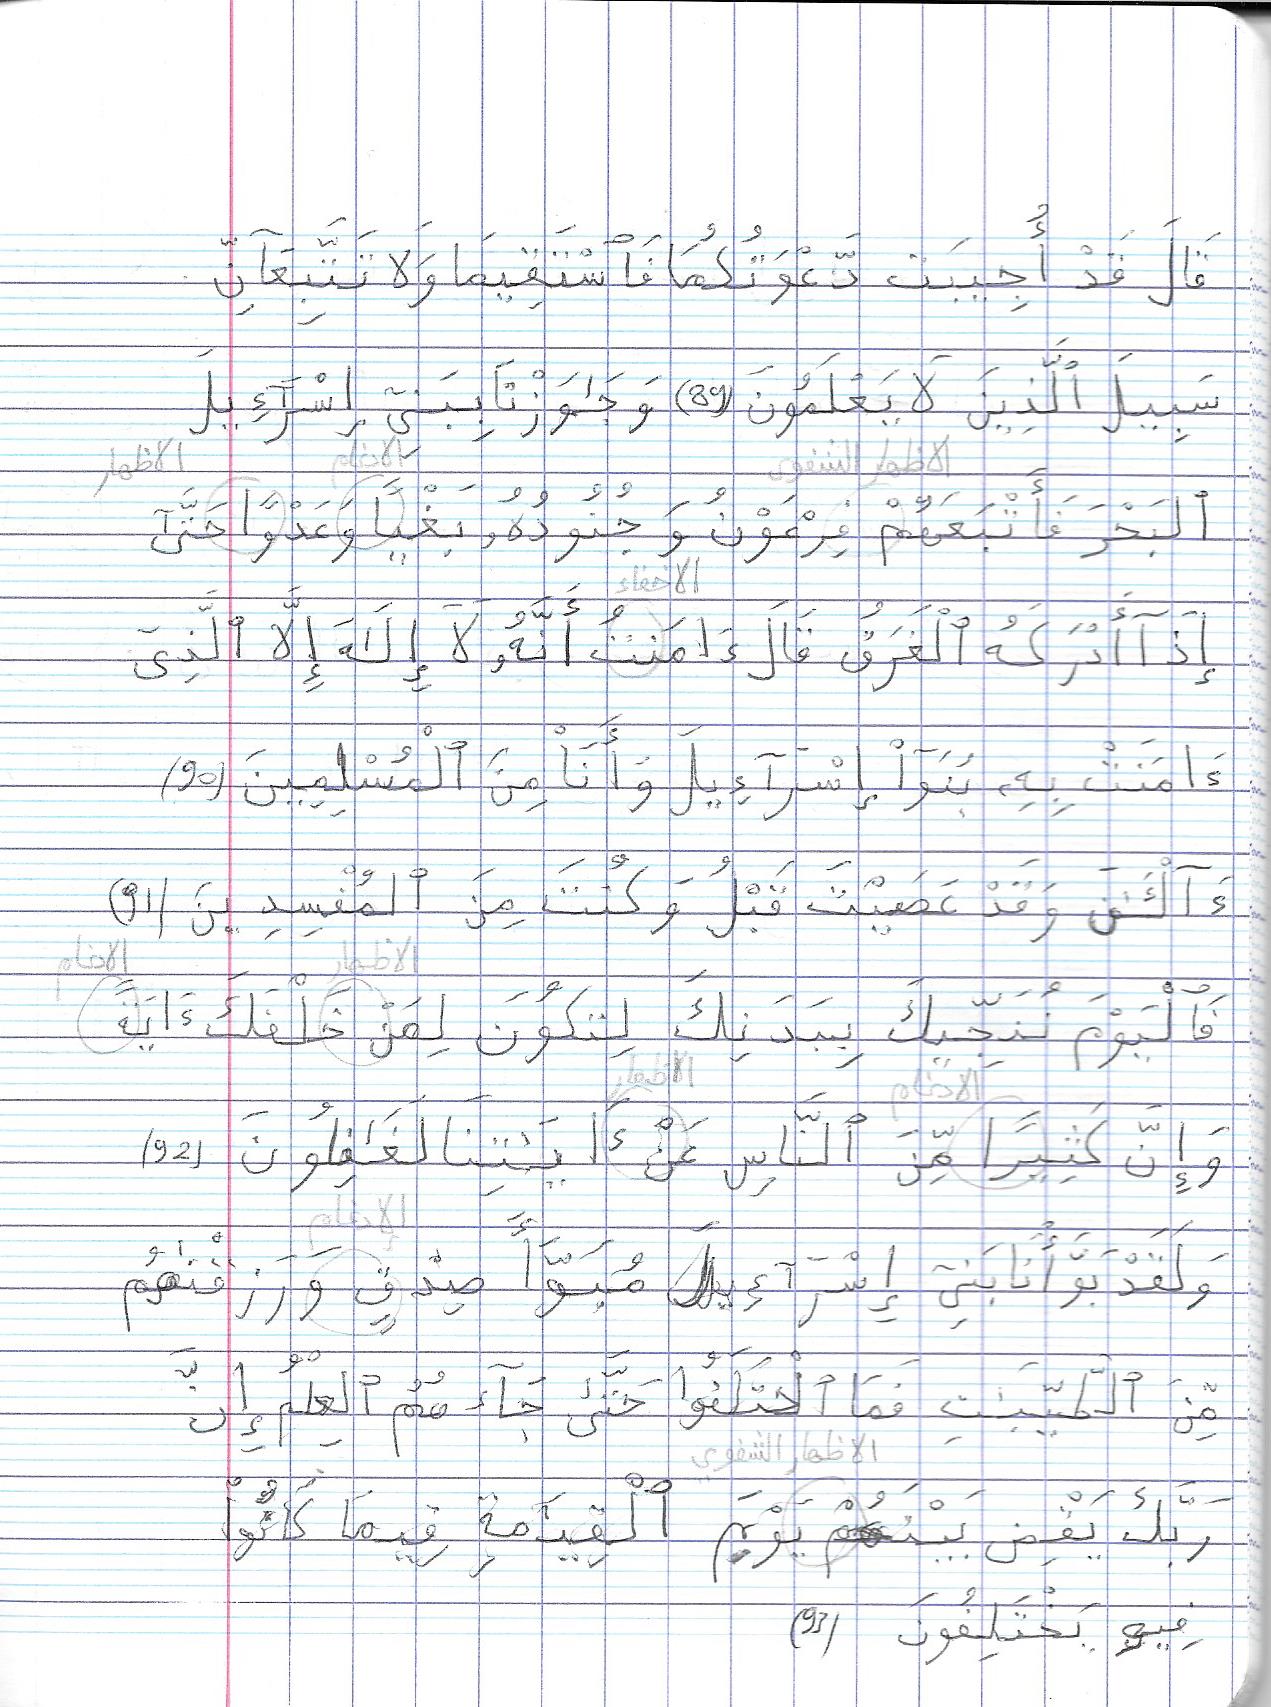 قَالَ قَدْ أُجِيبَت دَّعْوَتُكُمَا فَٱسْتَقِيمَا وَلَا تَتَّبِعَآنِّ
سَبِيلَ ٱلَّذِينَ لَا يَعْلَمُونَ (89) وَجَٰوَزْنَا بِبَنِىٓ إِسْرَآءِيلَ
الاظهار الشفوي الادغام الاظهار
ٱلْبَحْرَ فَأَتْبَعَهُمْ فِرْعَوْنُ وَجُنُودُهُۥ بَغْيًا وَعَدْوًا حَتَّىٰٓ
الاخفاء
إِذَآ أَدْرَكَهُ ٱلْغَرَقُ قَالَ ءَامَنتُ أَنَّهُۥ لَآ إِلَٰهَ إِلَّا ٱلَّذِىٓ
ءَامَنَتْ بِهِۦ بَنُوٓاْ إِسْرَآءِيلَ وَأَنَا۠ مِنَ ٱلْمُسْلِمِينَ (90)
ءَآلْـَٰٔنَ وَقَدْ عَصَيْتَ قَبْلُ وَكُنتَ مِنَ ٱلْمُفْسِدِينَ (91)
الاظهار الادغام
فَٱلْيَوْمَ نُنَجِّيكَ بِبَدَنِكَ لِتَكُونَ لِمَنْ خَلْفَكَ ءَايَةً
الادغام الاظهار
وَإِنَّ كَثِيرًا مِّنَ ٱلنَّاسِ عَنْ ءَايَٰتِنَا لَغَٰفِلُونَ (92)
الإدغام
وَلَقَدْ بَوَّأْنَا بَنِىٓ إِسْرَآءِيلَ مُبَوَّأَ صِدْقٍ وَرَزَقْنَٰهُم
مِّنَ ٱلطَّيِّبَٰتِ فَمَا ٱخْتَلَفُوا حَتَّىٰ جَآءَهُمُ ٱلْعِلْمُ إِنَّ
الاظهار الشفوي
رَبَّكَ يَقْضِى بَيْنَهُمْ يَوْمَ ٱلْقِيَٰمَةِ فِيمَا كَانُواْ
فِيهِ يَخْتَلِفُونَ (93)